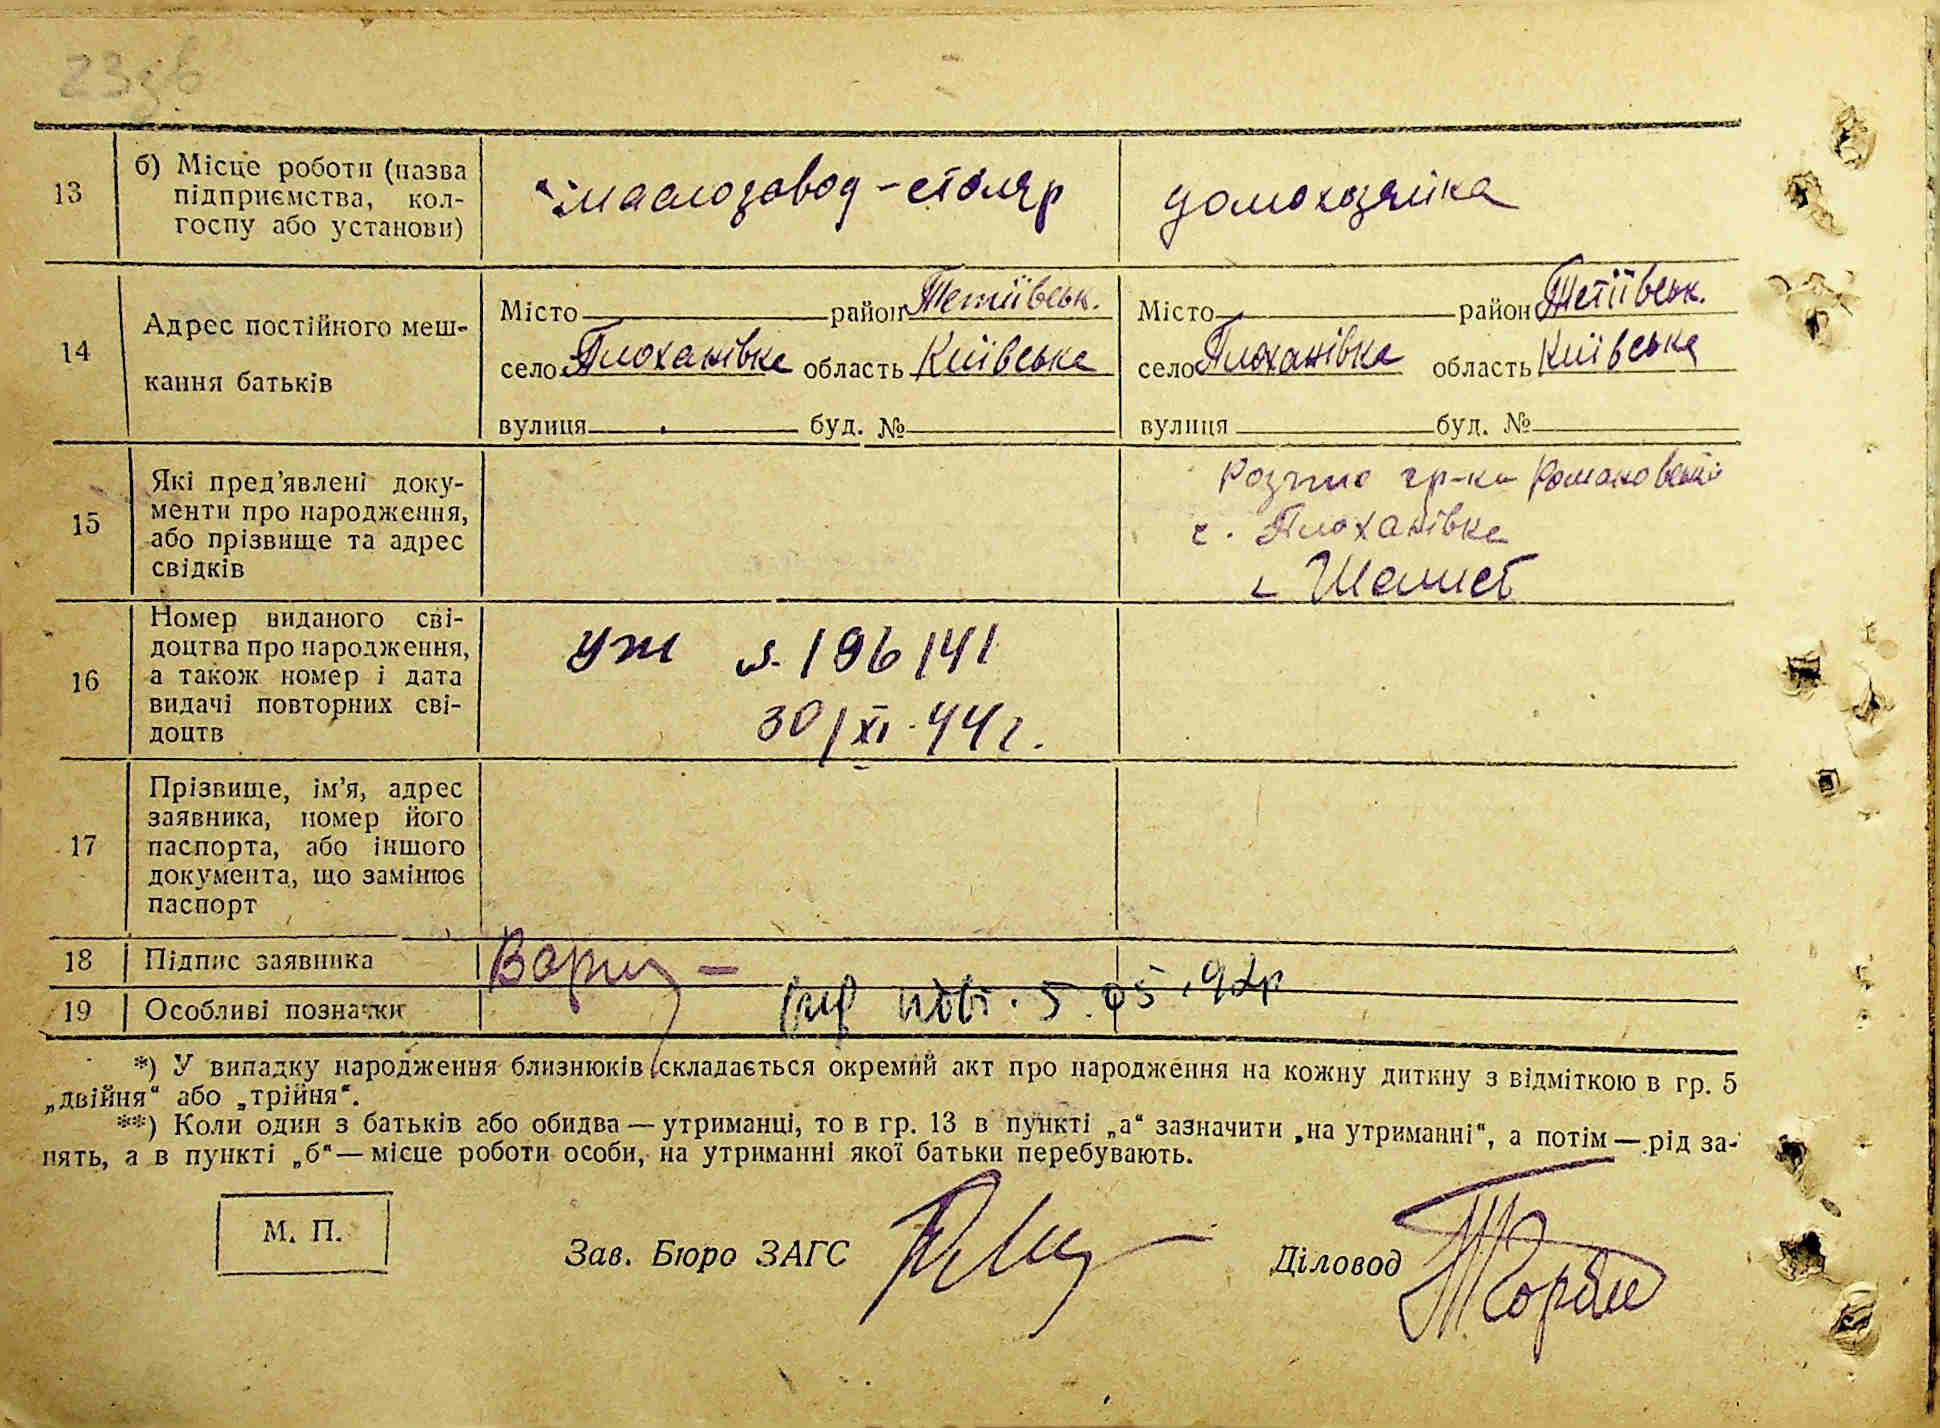 23зв
13
б) Місце роботи (назва
підприємства, кол-
госпу або установи)
маслозавод - столяр
домохазяйка
14
Адрес постійного меш-
кання батьків
Місто район Тетіївськ.
село Плоханівка область Київська
вулиця буд. №
Місто район Тетіївськ.
село Плоханівка область Київська
вулиця буд. №
15
Які пред'явлені доку-
менти про народження,
або прізвище та адрес
свідків
гр-ки Романовській
с. Плоханівка
16
Номер виданого сві-
доцтва про народження,
а також номер і дата
видачі повторних сві-
доцтв
УЖ 196141
30/XI-44г.
17
Прізвище, ім'я, адрес
заявника, номер його
паспорта, або іншого
документа, що замінює
паспорт
18
Підпис заявника
19
Особливі позначки
повт. 5.05.92р
*) У випадку народження близнюків складається окремий акт про народження на кожну дитину з відміткою в гр. 5
„двійня“ або „трійня“.
**) Коли один з батьків або обидва — утриманці, то в гр. 13 в пункті „а“ зазначити „на утриманні“, а потім — рід за-
нять, а в пункті „б“ — місце роботи особи, на утриманні якої батьки перебувають.
М. П.
Зав. Бюро ЗАГС
Діловод